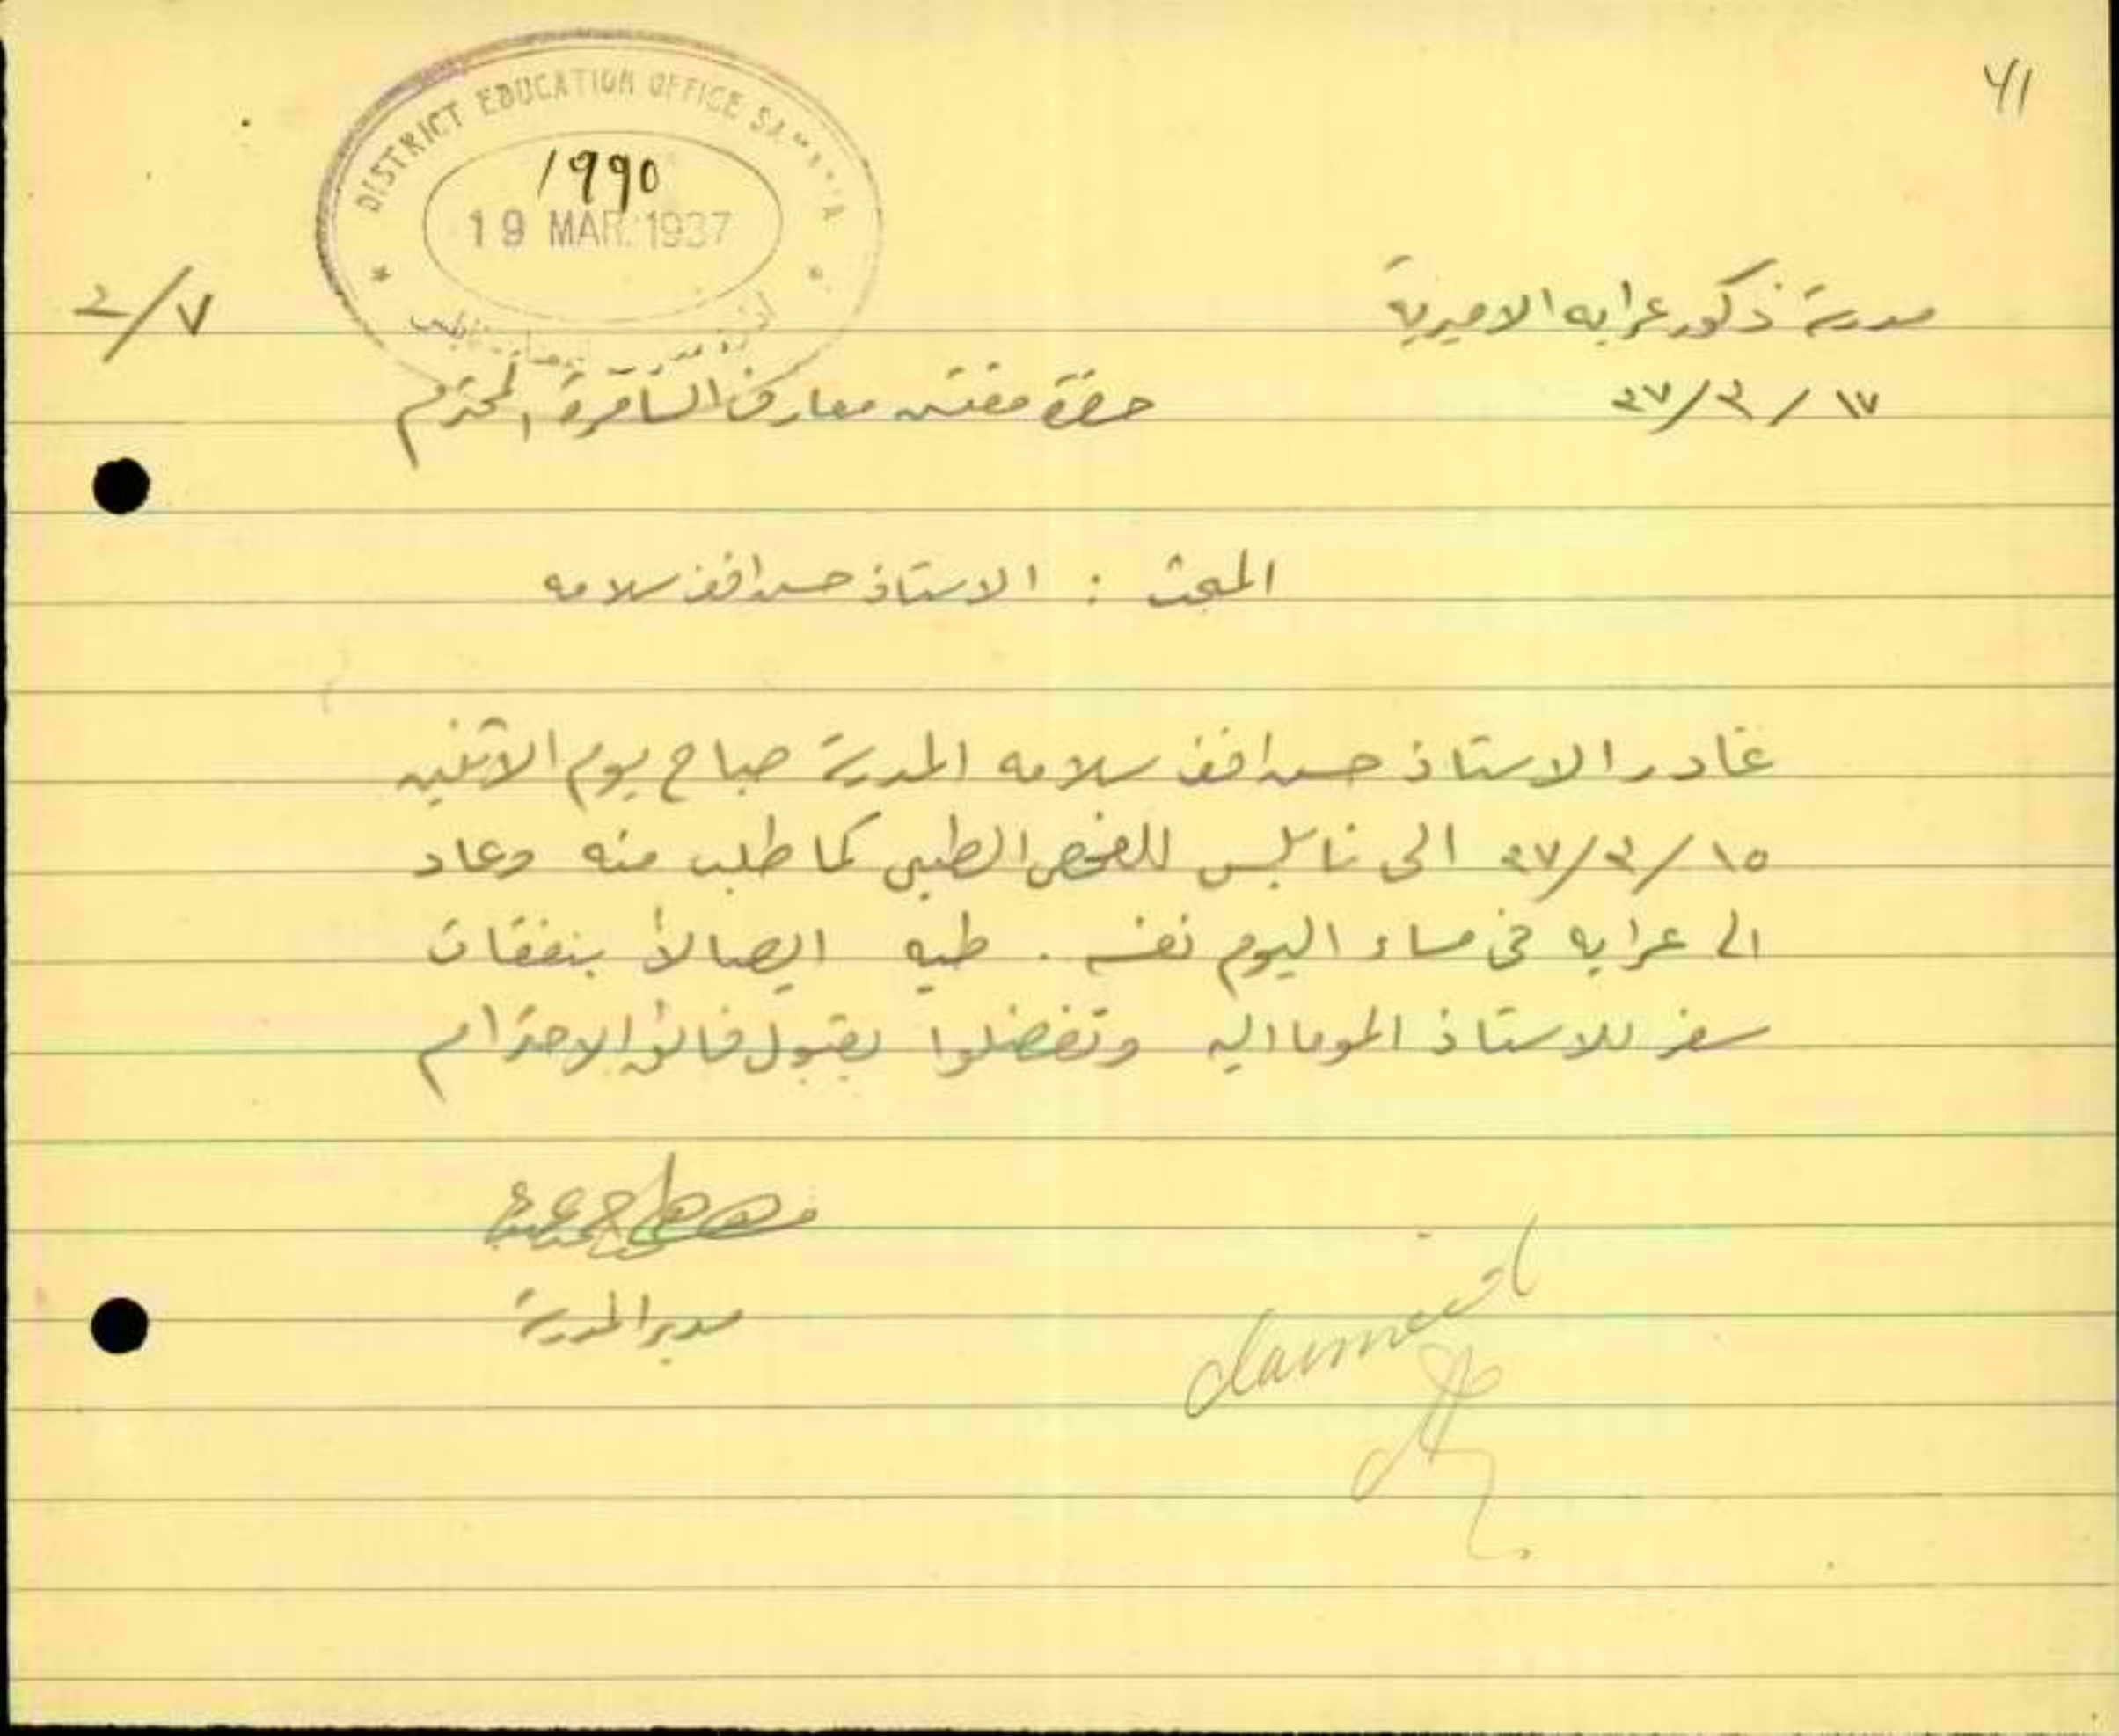 41
DISTRICT EDUCATION OFFICE
1990
19 MAR. 1937
٧/٤
مدرسة ذكور عرابه الاميرية
١٧/٣/٣٧
حضرة مفتش معارف السامرة المحترم
المبحث : الاستاذ حسن افندي سلامه
غادر الاستاذ حسن افندي سلامه المدرسة صباح يوم الاثنين
١٥/٣/٣٧ الى نابلس للفحص الطبي كما طلب منه وعاد
الى عرابه في مساء اليوم نفسه . طيه ايصالاً بنفقات
سفر للاستاذ المومااليه وتفضلوا بقبول فائق الاحترام
مدير المدرسة